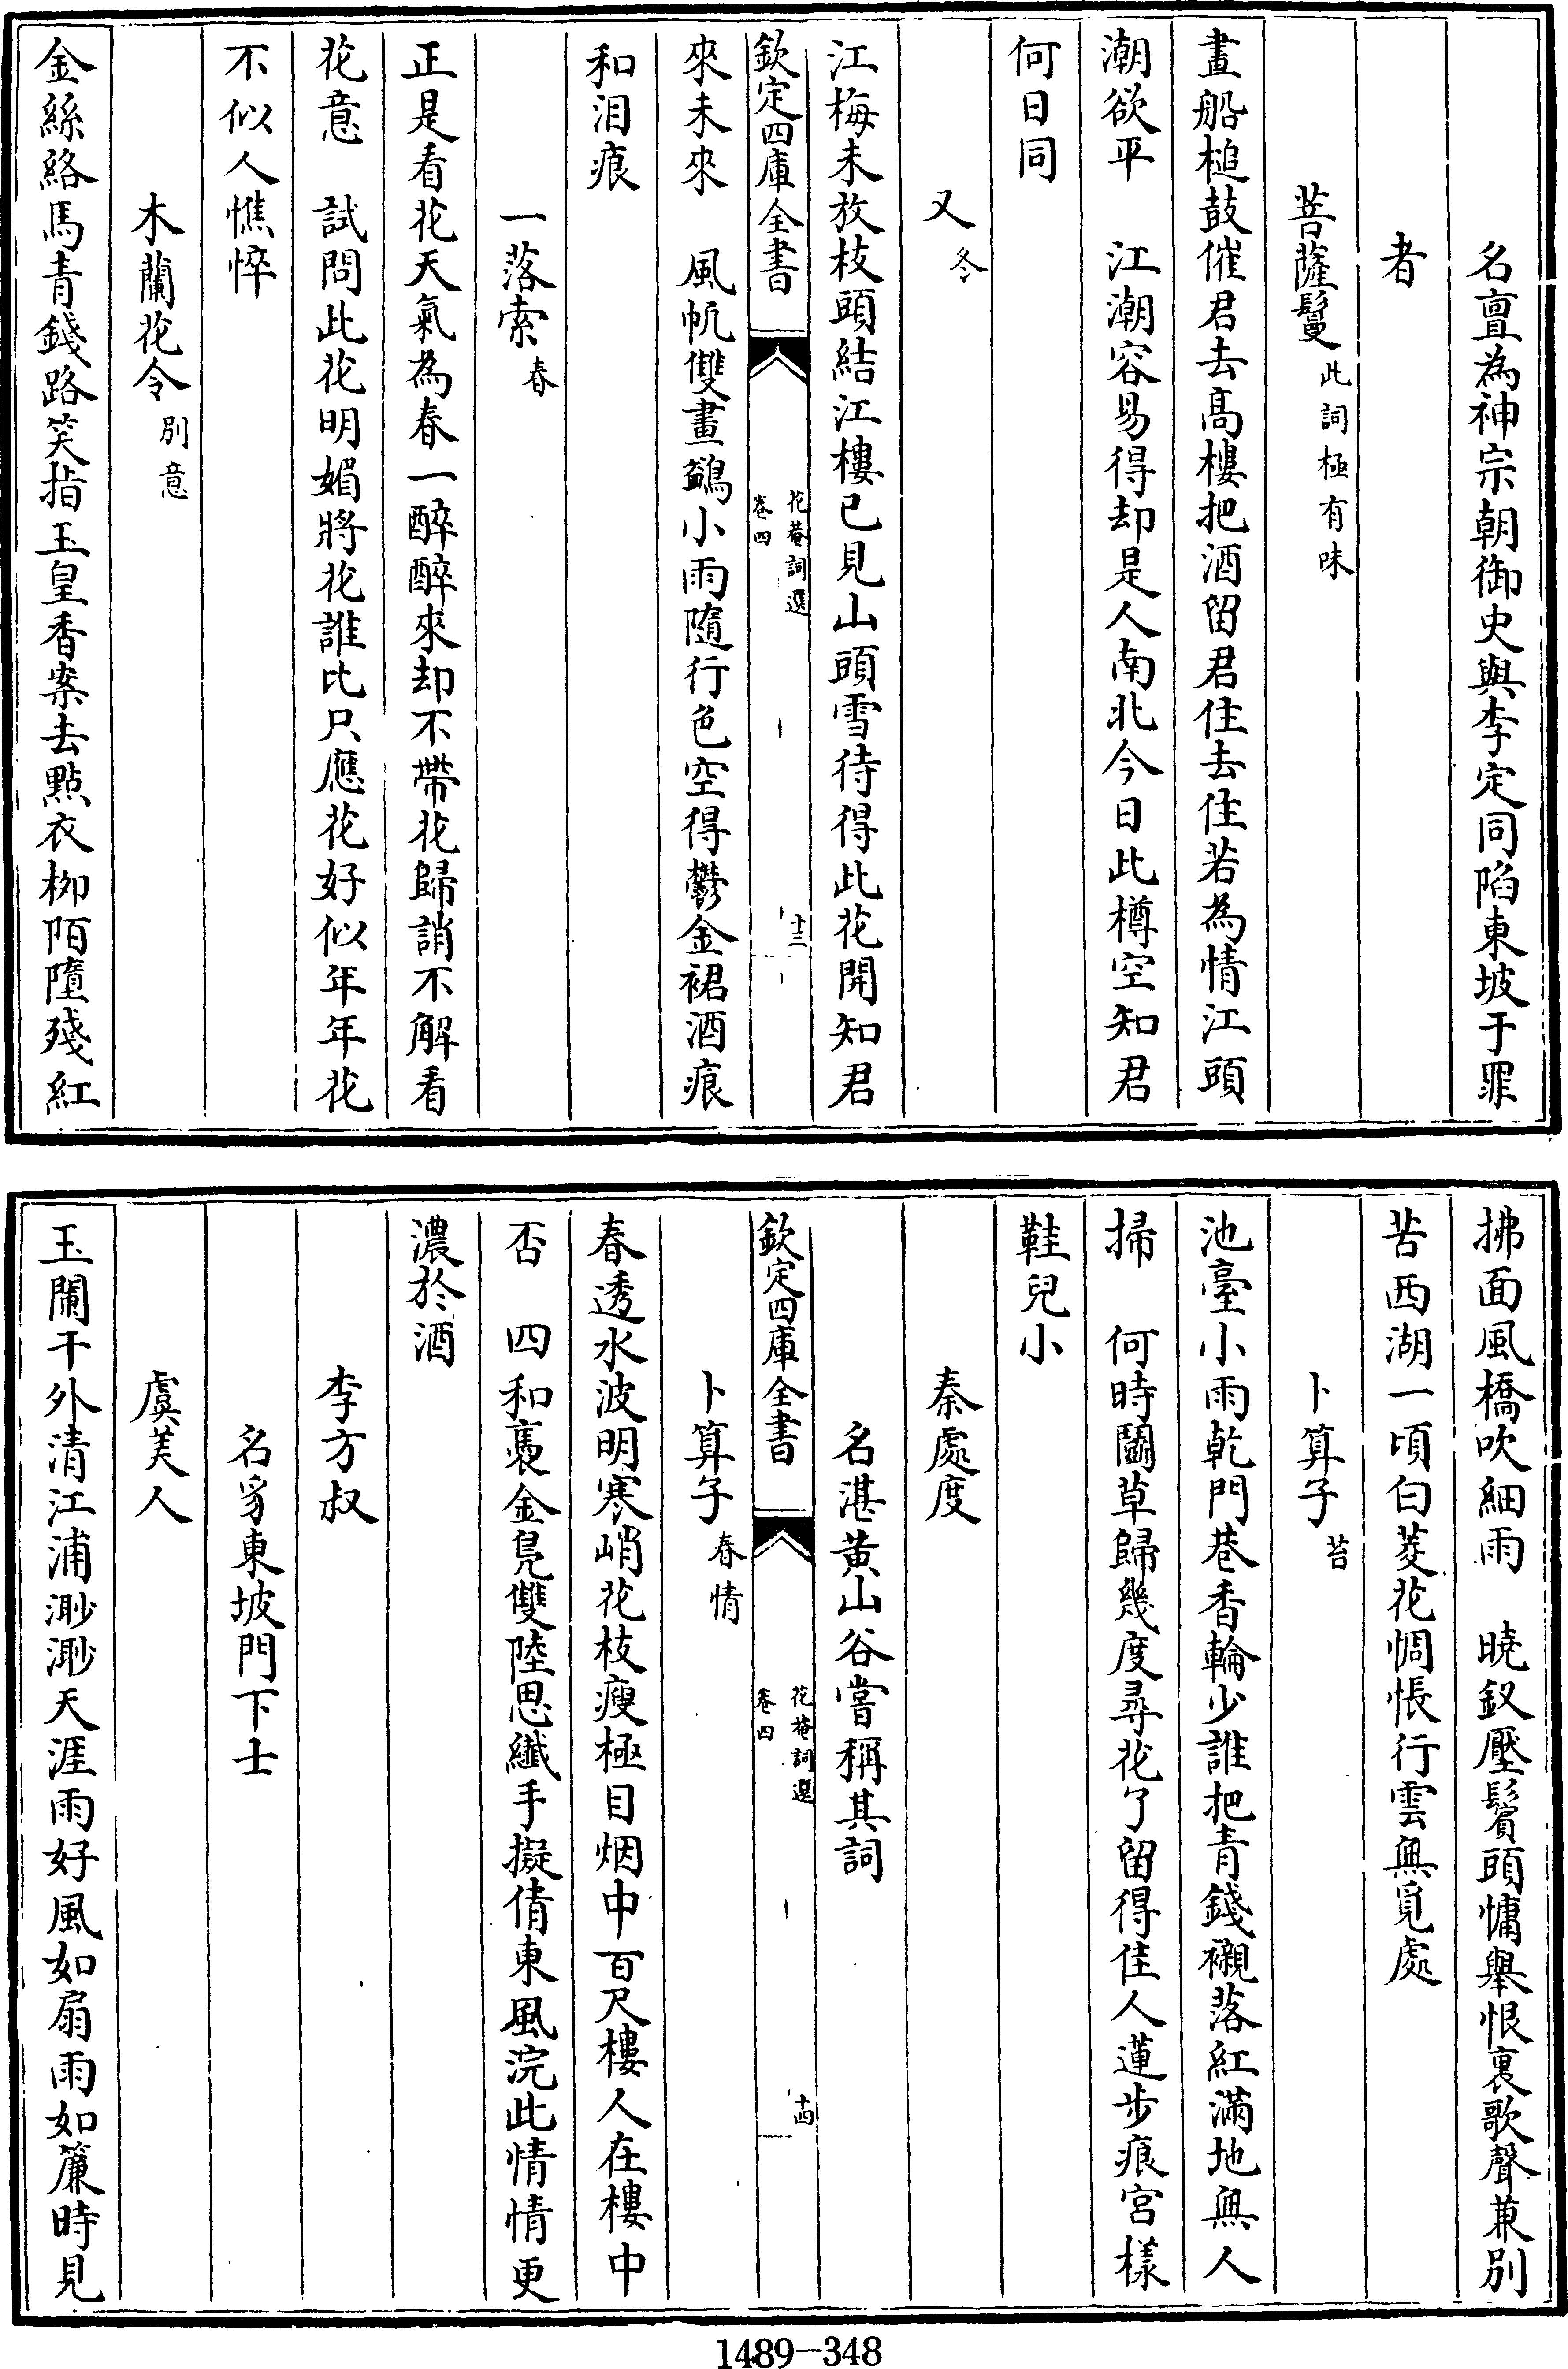 名亶為神宗朝御史與李定同陷東坡于罪
者
菩薩鬘此詞極有味
畫船槌鼓催君去高樓把酒留君住去住若為情江頭
潮欲平　江潮容易得却是人南北今日此樽空知君
何日同
又冬
江梅未放枝頭結江樓已見山頭雪待得此花開知君
欽定四庫全書
花菴詞選
卷四
十三
來未來　風帆雙畫鷁小雨隨行色空得鬱金裙酒痕
和泪痕
一落索春
正是看花天氣為春一醉醉來却不帶花歸誚不解看
花意　試問此花明媚將花誰比只應花好似年年花
不似人憔悴
木蘭花令別意
金絲絡馬青錢路笑指玉皇香案去點衣栁陌墮殘紅
拂面風橋吹細雨　曉釵壓鬢頭慵舉恨裏歌聲兼別
苦西湖一頃白菱花惆悵行雲無覓處
卜算子苔
池臺小雨乾門巷香輪少誰把青錢襯落紅滿地無人
掃　何時鬭草歸幾度尋花了留得佳人蓮步痕宮樣
鞋兒小
秦處度
名湛黄山谷嘗稱其詞
欽定四庫全書
花菴詞選
卷四
十四
卜算子春情
春透水波明寒峭花枝瘦極目烟中百尺樓人在樓中
否　四和裊金鳬雙陸思纎手擬倩東風浣此情情更
濃於酒
李方叔
名豸東坡門下士
虞美人
玉闌干外清江浦渺渺天涯雨好風如扇雨如簾時見
1489-348